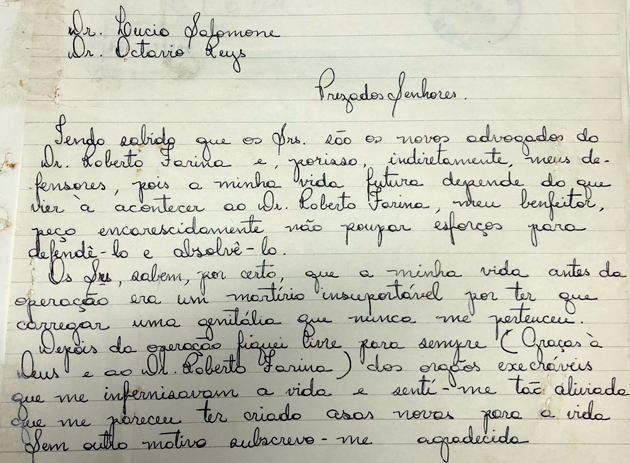 Dr. Lucio Salomone
Dr. Octavio Reys
Prezados Senhores.
Tendo sabido que os Srs. são os novos advogados do
Dr. Roberto Farina e, porisso, indiretamente, meus de-
fensores, pois a minha vida futura depende do que
vier à acontecer ao Dr. Roberto Farina, meu benfeitor,
peço encarescidamente não poupar esforços para
defendê-lo e absolvê-lo.
Os Srs, sabem, por certo, que a minha vida antes da
operação era um martírio insuportável por ter que
carregar uma genitália que nunca me pertenceu.
Depois da operação fiquei livre para sempre (Graças à
Deus e ao Dr. Roberto Farina) dos orgãos execráveis
que me infernisavam a vida e senti-me tão aliviada
que me pareceu ter criado asas novas para a vida
Sem outro motivo subscrevo-me agradecida